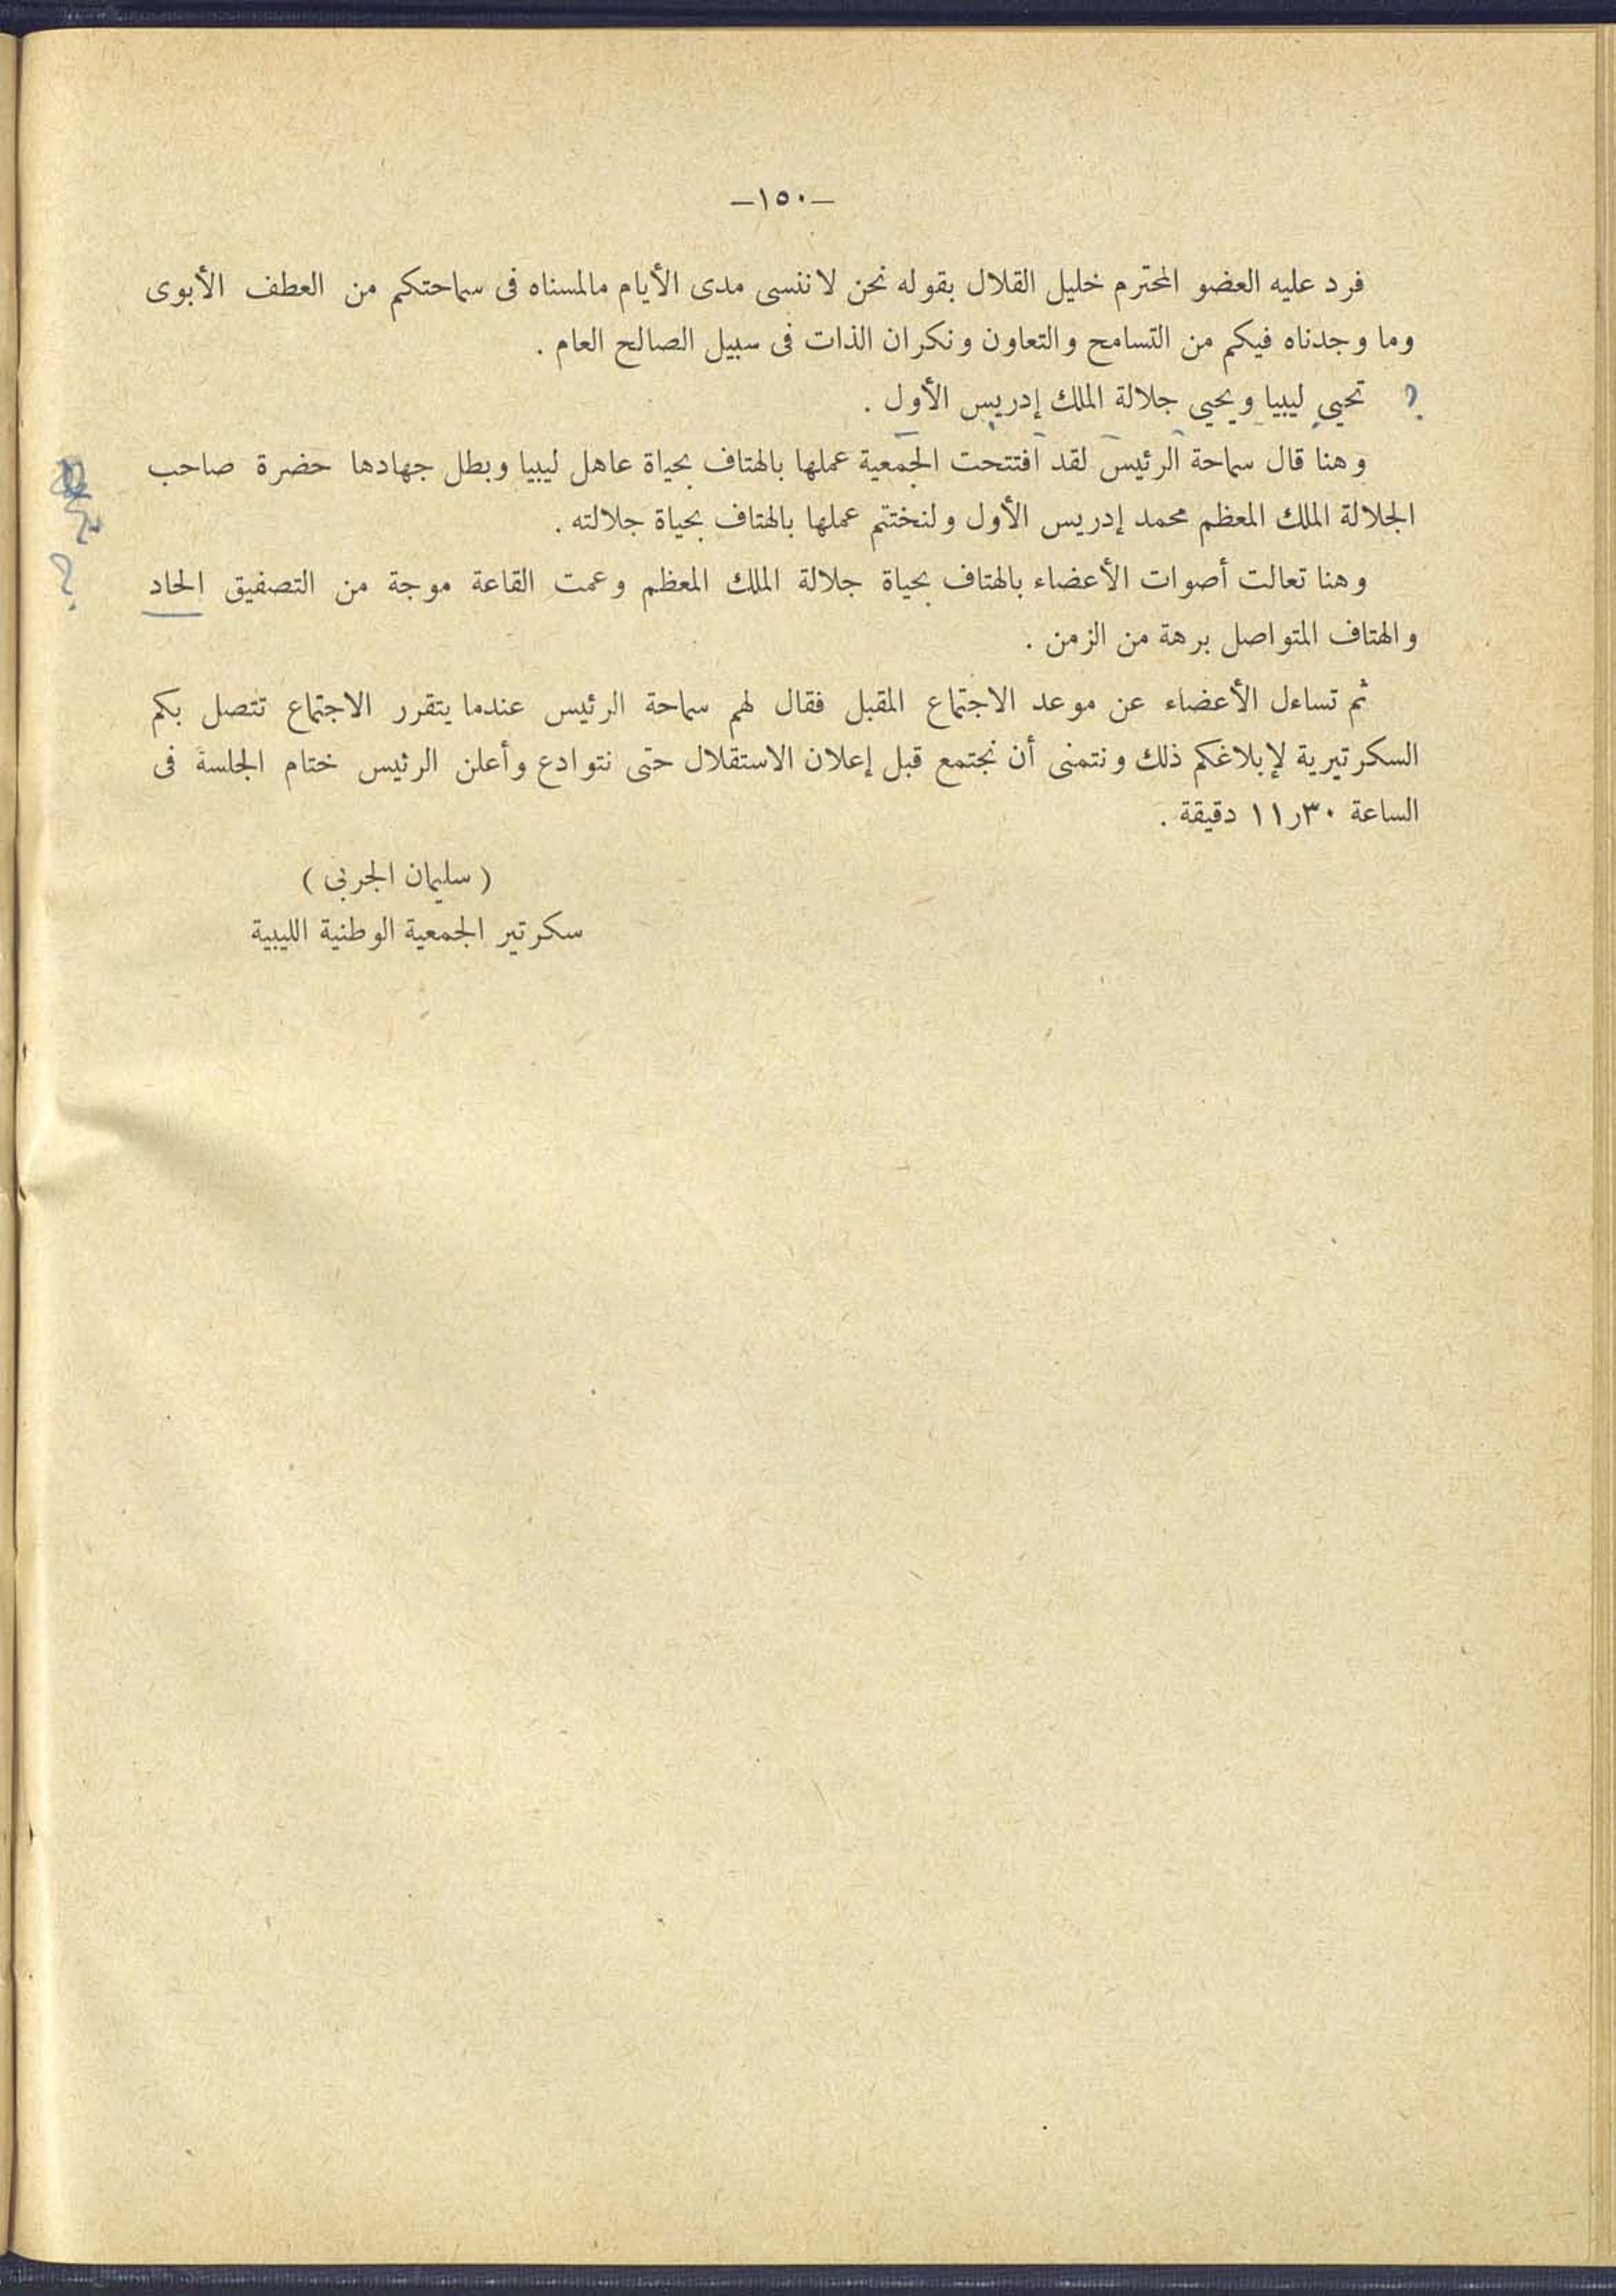 —١٥٠—
فرد عليه العضو المحترم خليل القلال بقوله نحن لا ننسى مدى الأيام مالمسناه فى سماحتكم من العطف الأبوى
وما وجدناه فيكم من التسامح والتعاون ونكران الذات فى سبيل الصالح العام .
؟ تحيي ليبيا ويحيي جلالة الملك إدريس الأول .
وهنا قال سماحة الرئيس لقد افتتحت الجمعية عملها بالهتاف بحياة عاهل ليبيا وبطل جهادها حضرة صاحب
الجلالة الملك المعظم محمد إدريس الأول ولنختتم عملها بالهتاف بحياة جلالته .
وهنا تعالت أصوات الأعضاء بالهتاف بحياة جلالة الملك المعظم وعمت القاعة موجة من التصفيق الحاد ؟
والهتاف المتواصل برهة من الزمن .
ثم تساءل الأعضاء عن موعد الاجتماع المقبل فقال لهم سماحة الرئيس عندما يتقرر الاجتماع تتصل بكم
السكرتيرية لإبلاغكم ذلك ونتمنى أن نجتمع قبل إعلان الاستقلال حتى نتوادع وأعلن الرئيس ختام الجلسة فى
الساعة ٣٠ر١١ دقيقة .
( سليمان الجربى )
سكرتير الجمعية الوطنية الليبية